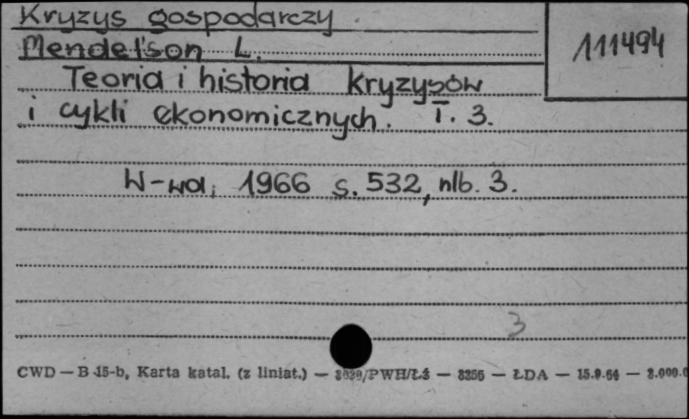 Kryzys gospodarczy
111494
Mendel'son L.
Teoria i historia kryzysów
i cykli ekonomicznych. T. 3.
W-wa, 1966 s. 532, nlb. 3.
3
CWD — B 15-b, Karta katal. (z liniat.) — /PWH/Łż — 3356 — ŁDA — 15.9.66 —